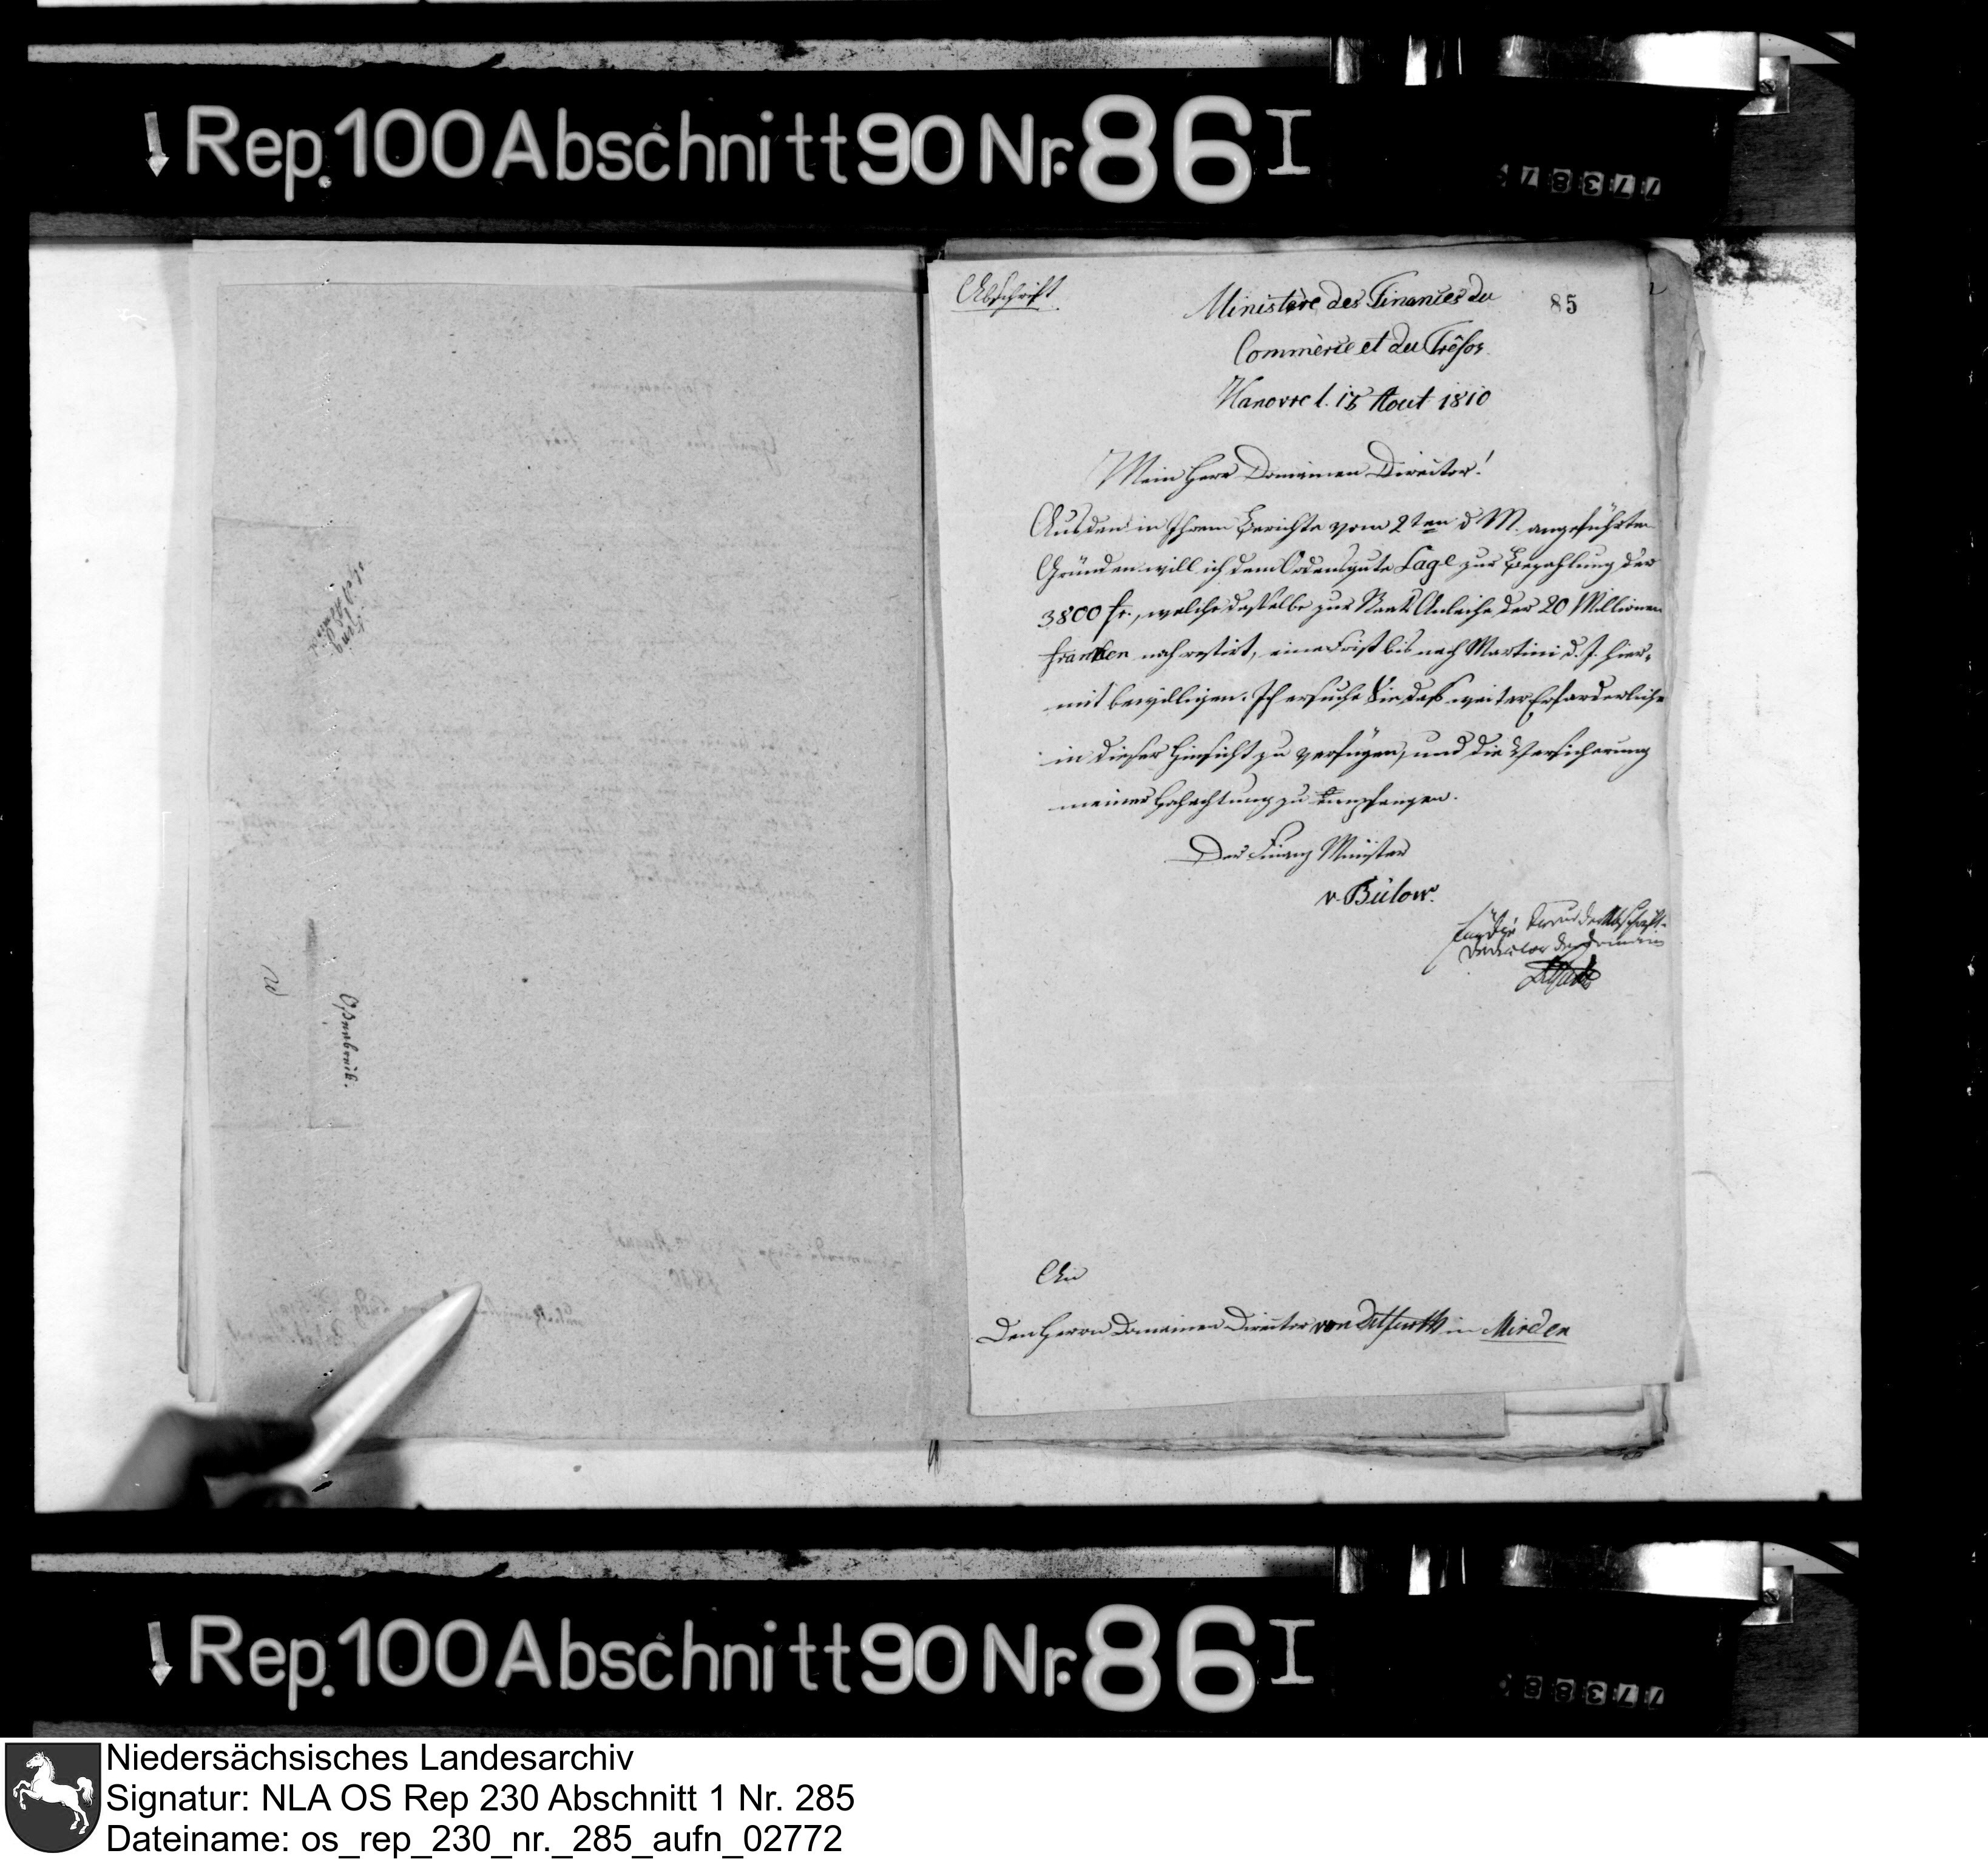 Rep. 100 Abschnitt 90 Nr. 86 I
77387
Abschrift
85
Ministère des Finances du
Commèrce et du Trésor.
Hanovre l. 15 Aout 1810
Mein Herr Domainen Director!
Aus den in Ihrem Berichte vom 2ten d M. angeführten
Gründen will ich dem Ordensgute Lage zur Bezahlung der
3800 fr., welche dasselbe zur Staats Anleihe der 20 Millionen
Franken noch restirt, eine Frist bis nach Martini d. J. hier-
mit bewilligen. Ich ersuche Sie daß weiter Erforderliche
in dieser Hinsicht zu verfügen, und die Versicherung
meiner Hochachtung zu empfangen.
Der Finanz Minister
v. Bülow.
für die Treue der Abschrift
Director der Domainen
An
Den Herrn Domainen Director von Ditfurth in Minden
Osnabrück.
Rep. 100 Abschnitt 90 Nr. 86 I
77388
Niedersächsisches Landesarchiv
Signatur: NLA OS Rep 230 Abschnitt 1 Nr. 285
Dateiname: os_rep_230_nr._285_aufn_02772